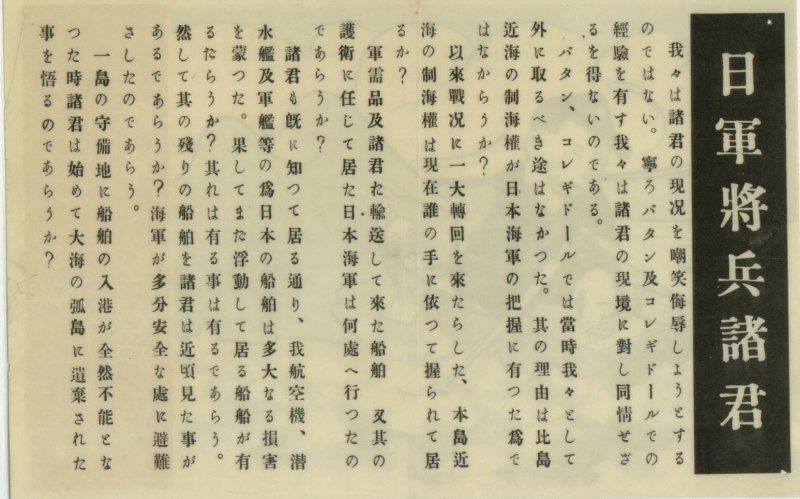 日軍將兵諸君
我々は諸君の現況を嘲笑侮辱しようとする
のではない。寧ろバタン及コレギドールでの
經驗を有す我々は諸君の現境に對し同情せざ
るを得ないのである。
バタン、コレギドールでは當時我々として
外に取るべき途はなかつた。其の理由は比島
近海の制海權が日本海軍の把握に有つた爲で
はなからうか？
以來戰況に一大轉回を來たらした、本島近
海の制海權は現在誰の手に依つて握られて居
るか？
軍需品及諸君た輸送して來た船舶 又其の
護衛に任じて居た日本海軍は何處へ行つたの
であらうか？
諸君も既に知つて居る通り、我航空機、潜
水艦及軍艦等の爲日本の船舶は多大なる損害
を蒙つた。果してまだ浮動して居る船船が有
るだらうか？其れは有る事は有るであらう。
然して其の殘りの船舶を諸君は近頃見た事が
あるであらうか？海軍が多分安全な處に避難
さしたのであらう。
一島の守備地に船舶の入港が全然不能とな
つた時諸君は始めて大海の弧島に遺棄された
事を悟るのであらうか？